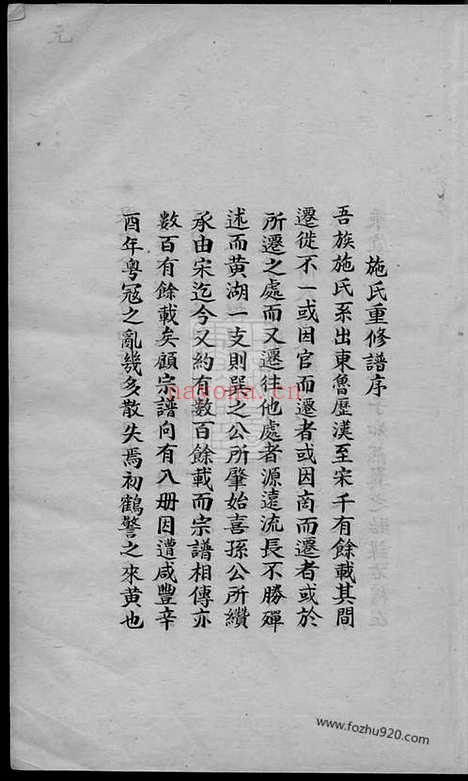 施氏重修譜序
吾族施氏系出東魯歷漢至宋千有餘載其間
遷徙不一或因官而遷者或因商而遷者或於
所遷之處而又遷往他處者源遠流長不勝殫
述而黃湖一支則畢之公所肇始喜孫公所纘
承由宋迄今又約有數百餘載而宗譜相傳亦
數百有餘載矣顧宗譜向有八册因遭咸豐辛
酉年粵寇之亂幾多散失焉初鶴警之來黃也
元
nayona.cn
www.fozhu920.com